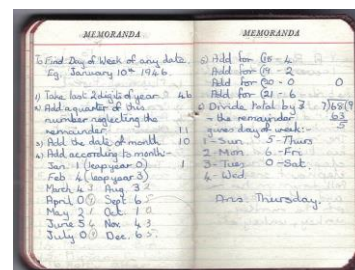 MEMORANDA
To Find Day of Week of any date
Eg. January 10th 1946.
1) Take last 2 digits of year 46
2) Add a quarter of this
number neglecting the
remainder 11
3) Add the date of month 10
4) Add according to month:-
Jan. 1 (leap year 0) 1
Feb 4 (leap year 3)
March 4 Aug. 3
April 0 Sept. 6
May 2 Oct. 1
June 5 Nov. 4
July 0 Dec. 6
MEMORANDA
5) Add for C18 - 4
Add for C19 - 2
Add for C20 - 0 0
Add for C21 - 6
6) Divide total by 7) 68 (9
- the remainder 63
gives day of week:- 5
1 - Sun. 5 - Thurs
2 - Mon 6 - Fri.
3 - Tues 0 - Sat.
4 - Wed.
Ans. Thursday.